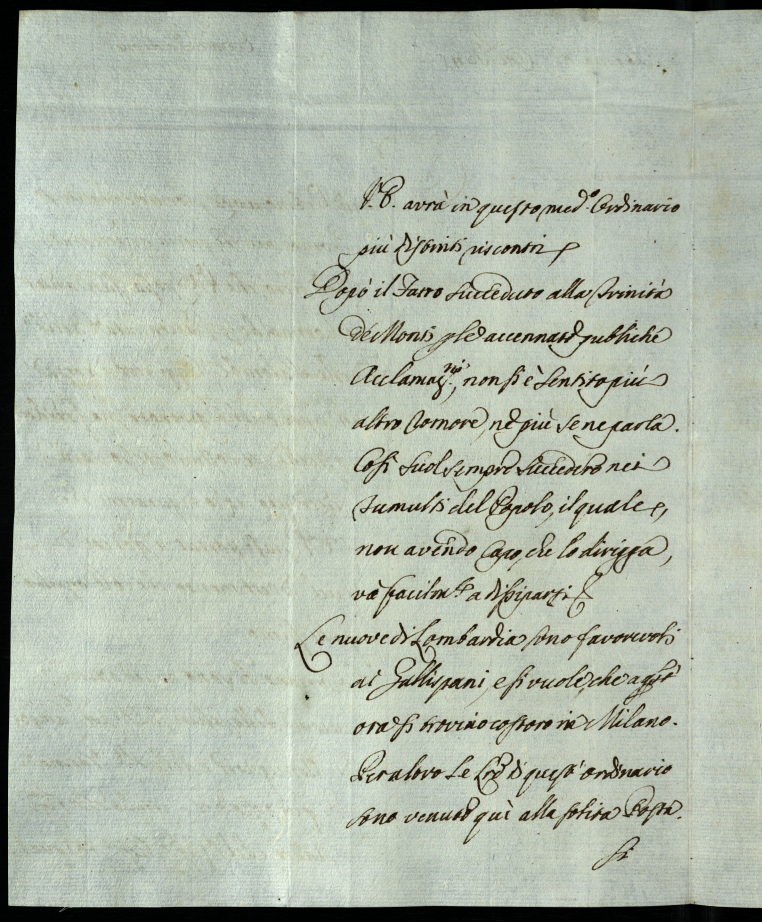 V.E. avrà in questo med.o Ordinario
più distinti riscontri
Dopò il Fatto succeduto alla Trinità
de Monti p le accennate publiche
Acclamaz.ni, non si è sentito più
altro romore, ne più se ne parla.
Così suol sempre succedere nei
tumulti del Popolo, il quale,
non avendo Capo, che lo diriggа,
và facilm.te a dissiparsi
Le nuove di Lombardia sono favorevoli
ai Gallispani, e si vuole, che a
ora si trovino costoro in Milano.
Peraltro le di quest' ordinario
sono venute quì alla solita Posta.
Si